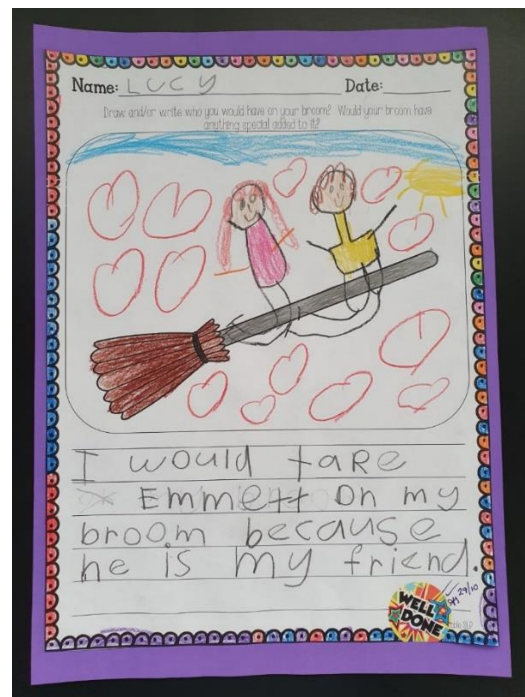 Name: LUCY Date:
Draw and/or write who you would have on your broom? Would your broom have
anything special added to it?
I would take
Emmett on my
broom because
he is my friend.
WELL
DONE
29/10